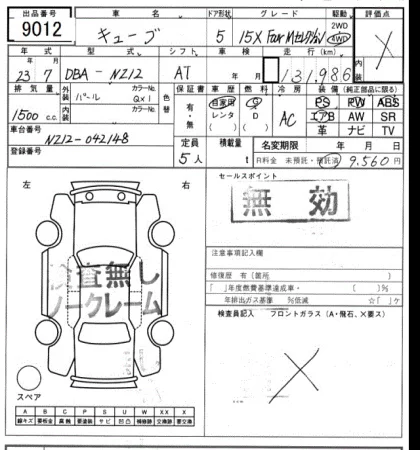 出品番号 車名 ドア形状 グレード 駆動 評価点
9012 キューブ 5 15X FOUR Mセレクション 2WD 4WD X
年式 型式 シフト 車検 走行(km) 内装
23 7 DBA-NZ12 AT 131,986
排気量 外装 カラーNo. 色替 保証書 車歴 燃料 冷房 装備(純正部品に限る)
1500 c.c. パール QX1 有・無 自家用 レンタ G AC PS PW ABS
内装 カラーNo. (D) エアB AW SR
車台番号 革 ナビ TV
NZ12-042148 定員 積載量 名変期限 年 月 日
登録番号 5人 t R料金 未預託・預託済 9,560円
左 右 セールスポイント
無効
検査無し
ノークレーム
注意事項記入欄
修復歴 有〔箇所 〕
「 」年度燃費基準達成車・ ( )%
年排出ガス基準 %低減 ☆「 」ケ
検査員記入 フロントガラス(A・飛石、X要ス)
X
スペア
A B C P S U W XX X
線キズ 要板金 腐触 要塗装 サビ 凹凸 補修跡 交換跡 要交換